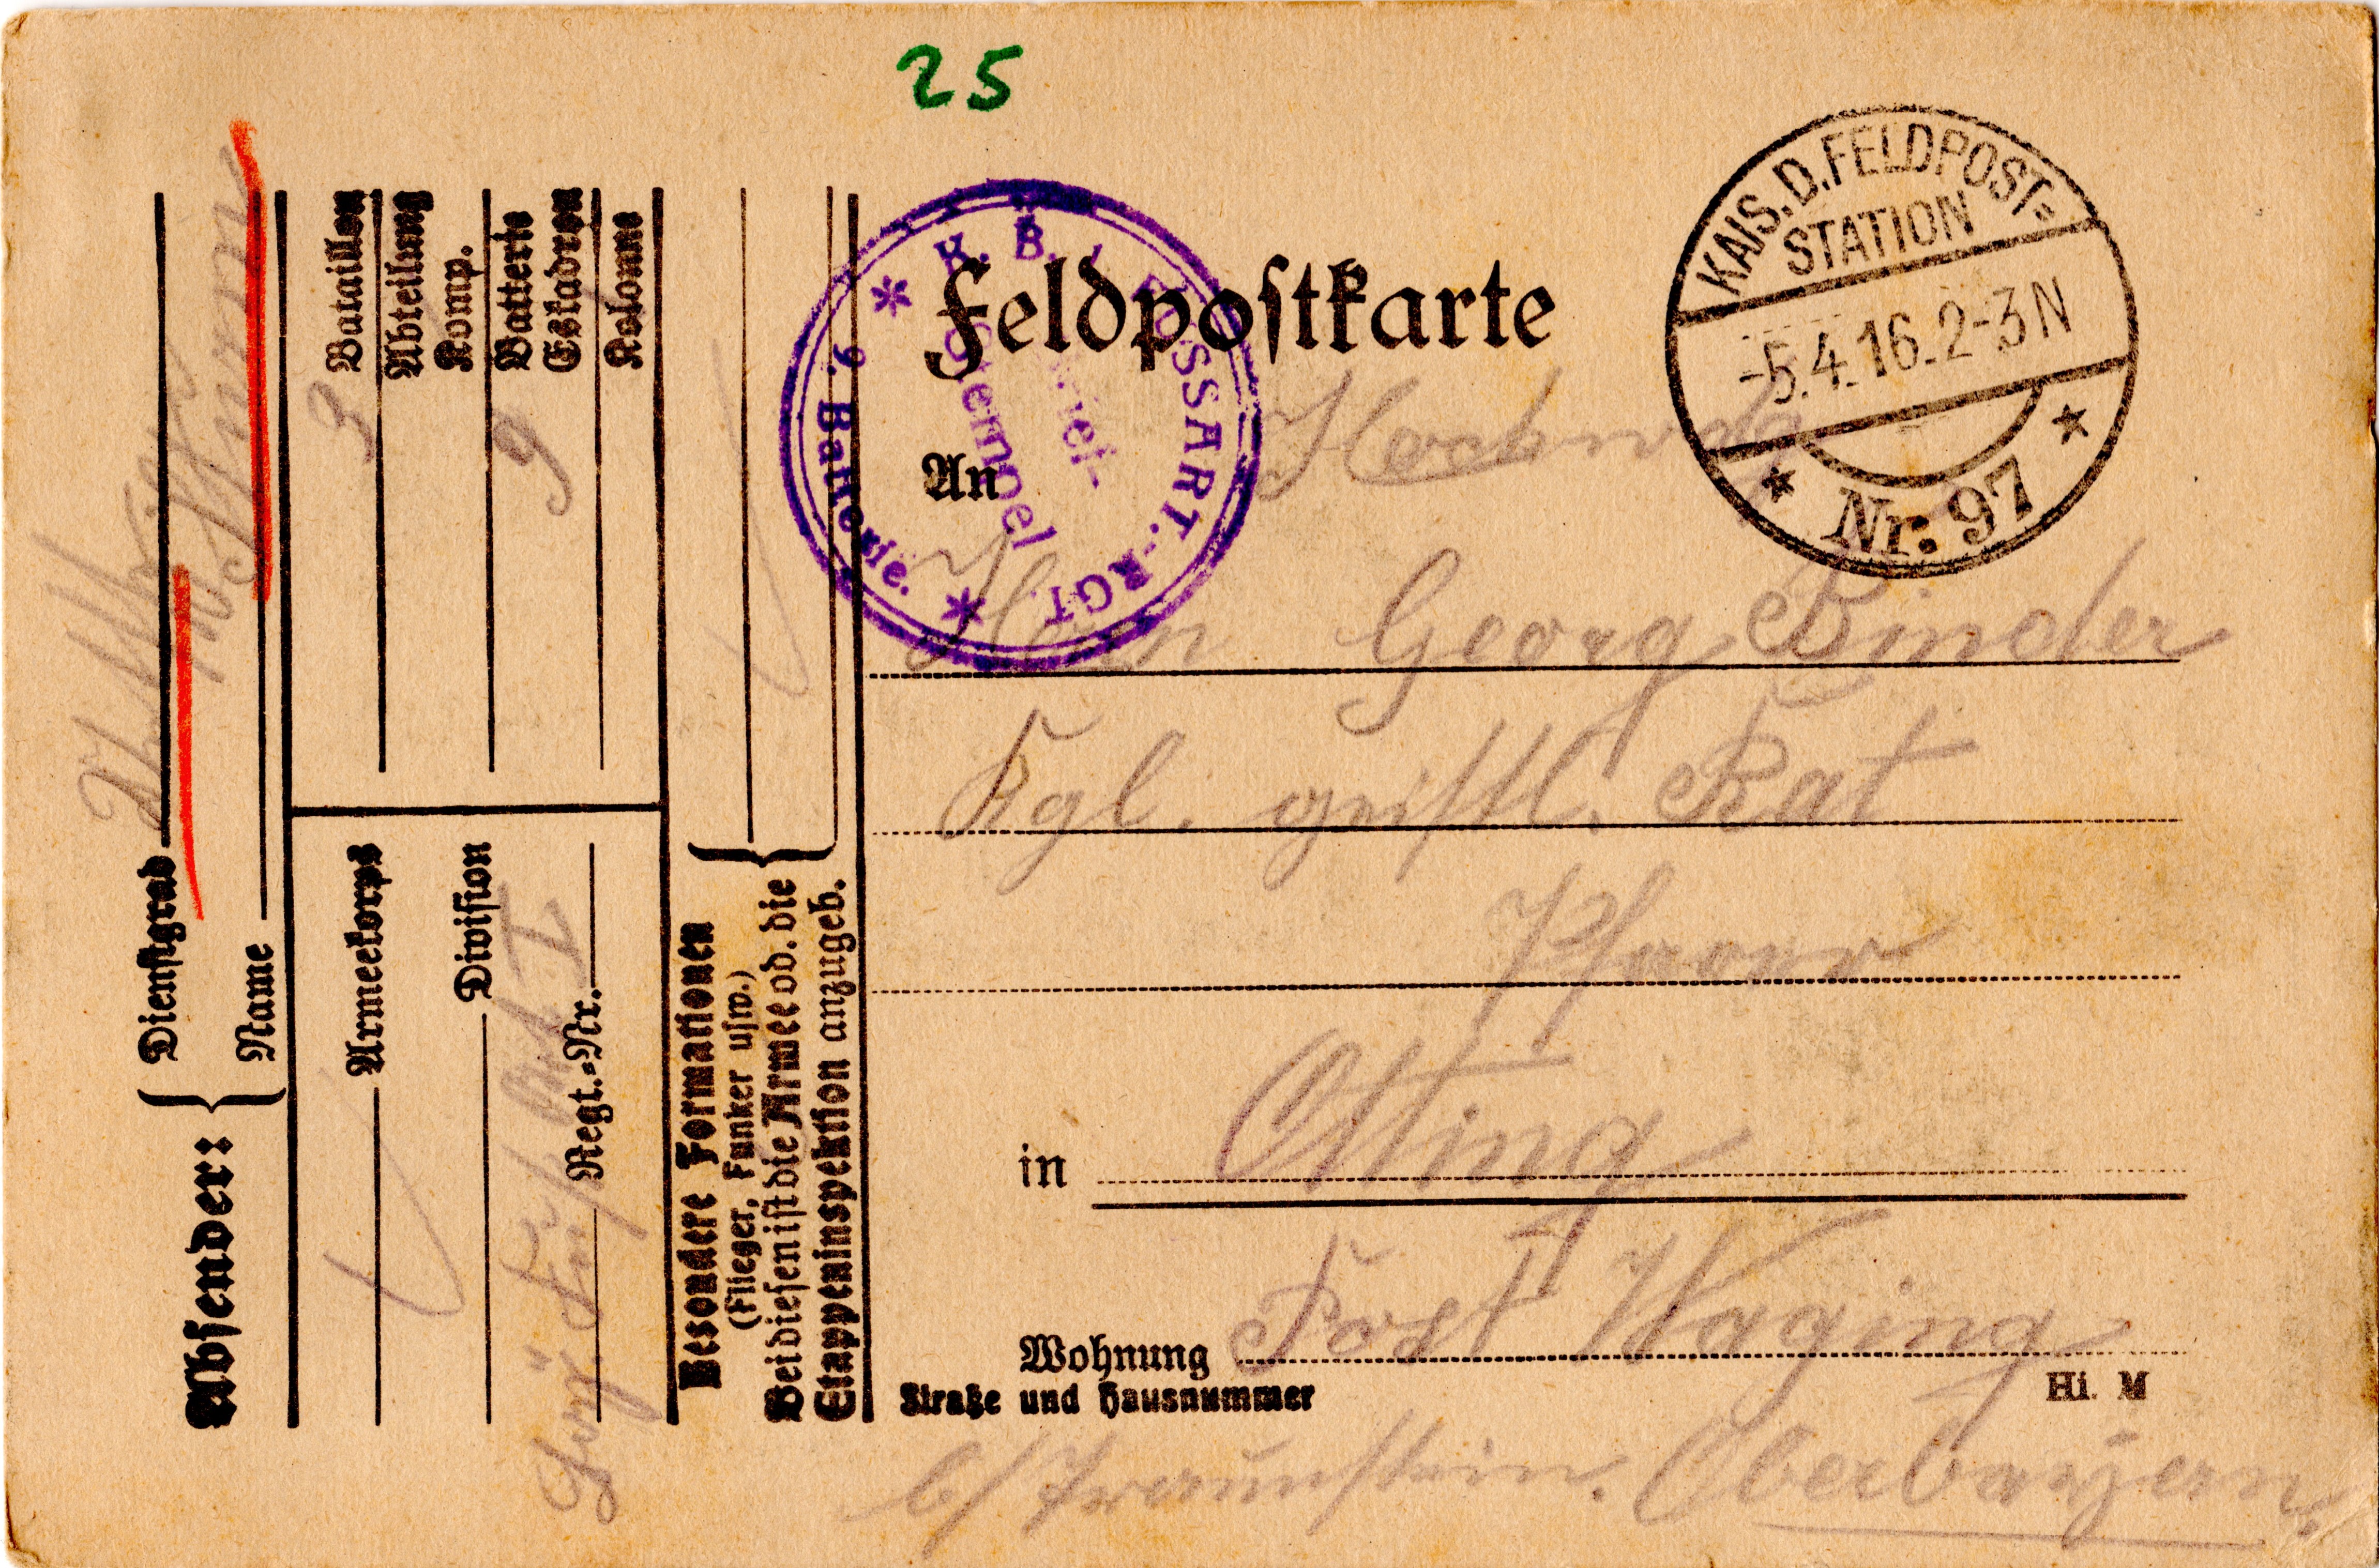 25
KAIS. D. FELDPOST-
STATION
-5.4.16. 2-3 N
* Nr. 97 *
* K. B. FUSSART.-RGT. *
9. Batterie.
stempel
Feldpostkarte
An
Hochw.
Herrn Georg Binder
Kgl. geistl. Rat
Pfarrer
in Otting
Wohnung Post Waging
Straße und Hausnummer
Hi. M
b/ Traunstein. Oberbayern.
Absender:
Dienstgrad
Name
3 Bataillon
Abteilung
Komp.
9 Batterie
Eskadron
Kolonne
Armeekorps
Division
Bay. Fuß Art I
Regt.-Nr.
Besondere Formationen
(Flieger, Funker usw.)
Bei diesen ist die Armee od. die
Etappeninspektion anzugeb.